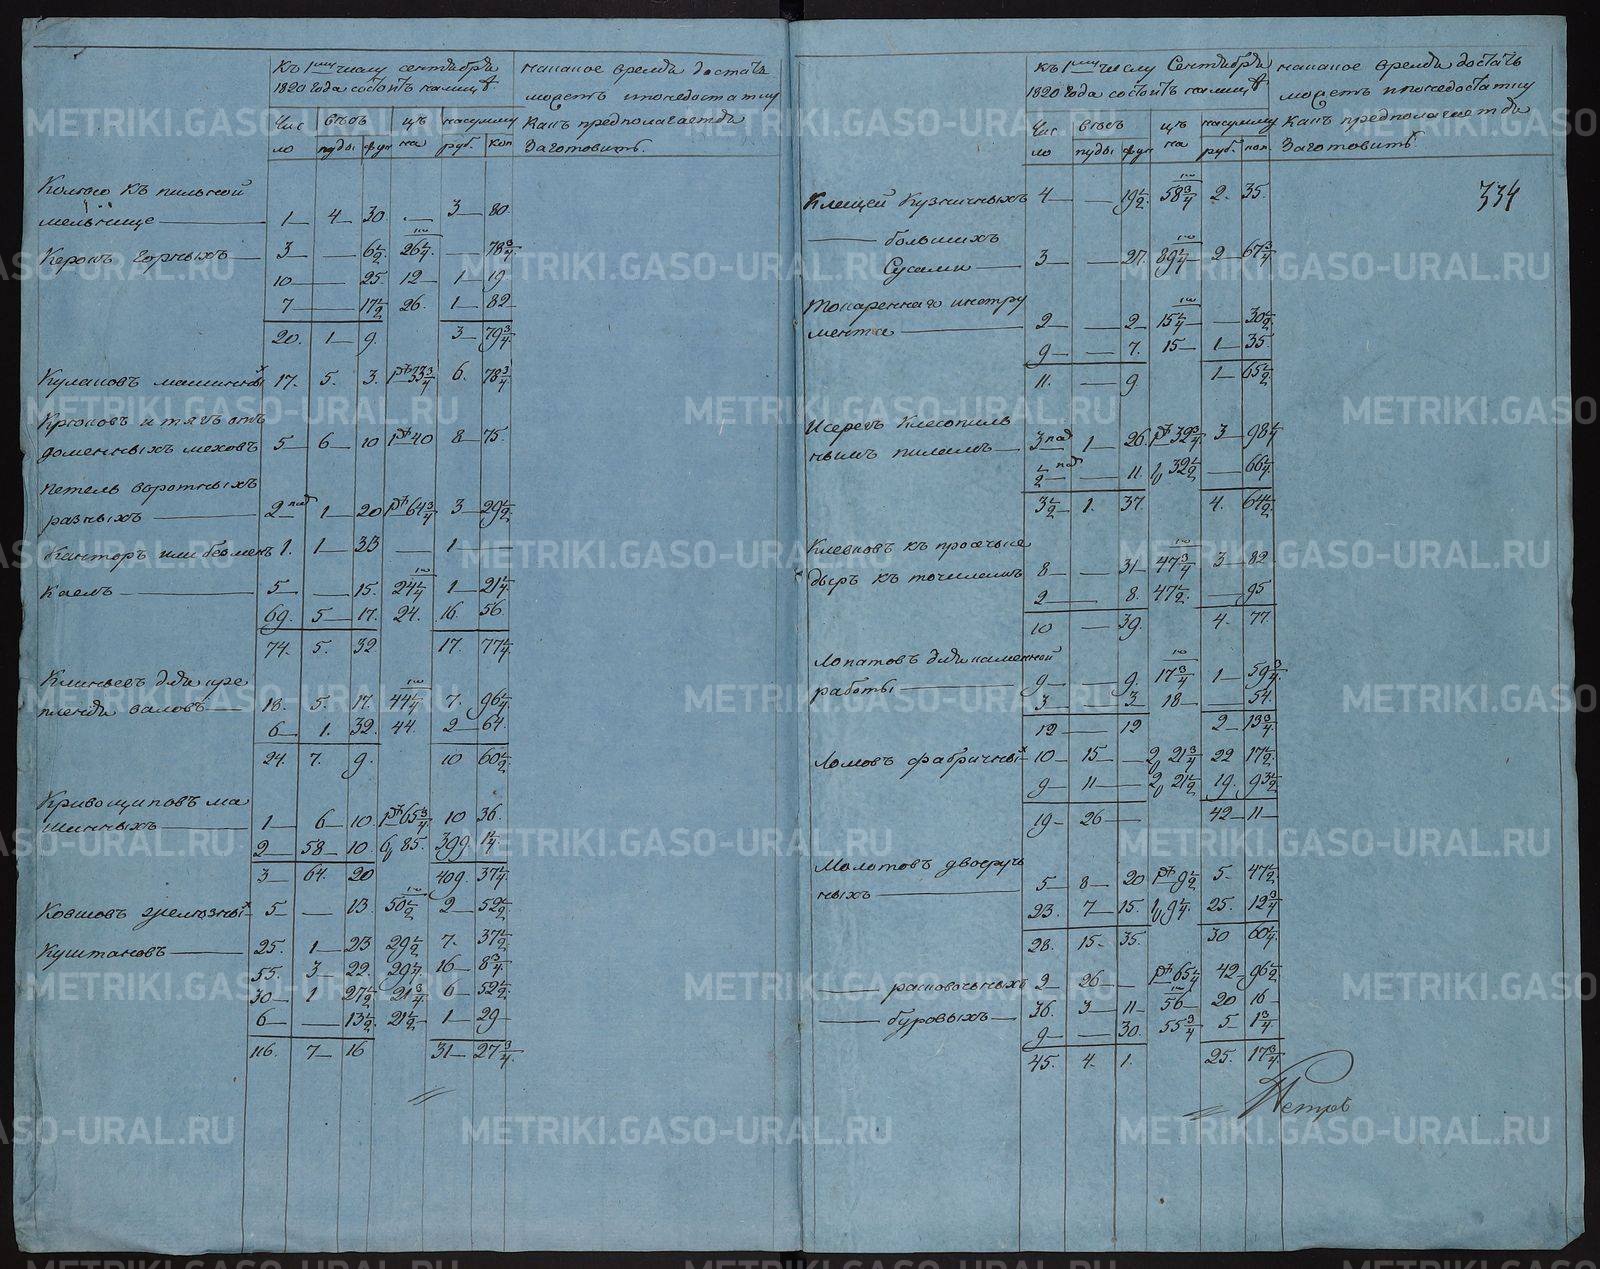 Къ 1му числу сентября 1820 года состоитъ налицо
на какое время достать можетъ и по недостатку
Какъ предполагается Заготовить.
Число вѣсъ цѣна на сумму
пуды фун руб. коп
Колесо къ пильной
мельнице 1 4 30 3 80
Керокъ Горныхъ 3 6½ 26¼ 78¾
10 25 12 1 19
7 17½ 26 1 82
20 1 9 3 79¾
Кулаковъ машинныхъ 17 5 3 1р 33¾ 6 78¾
Крюковъ и тягъ отъ
доменныхъ меховъ 5 6 10 1р 40 8 75
петель воротныхъ
разныхъ 2 1 20 64¾ 3 29½
Кантаръ или безменъ 1 1 33 1
Каелъ 5 15 24¼ 1 21¼
69 5 17 24 16 56
74 5 32 17 77¼
Клиньевъ для кре
пленья валовъ 18 5 17 44¼ 7 96¼
6 1 32 44 2 64
24 7 9 10 60½
Кривошиповъ ма
шинныхъ 1 6 10 1р 65¾ 10 36
2 58 10 6 85 399 1¼
3 64 20 409 37¼
Ковшовъ железныхъ 5 13 50½ 2 52½
Куштановъ 25 1 23 29½ 7 37½
55 3 22 29¼ 16 8¾
30 1 27½ 21¾ 6 52½
6 13½ 21½ 1 29
116 7 16 31 27¾
Къ 1му числу Сентября 1820 года состоитъ налицо
на какое время достать можетъ и по недостатку
Какъ предполагается Заготовить.
Число вѣсъ цѣна на сумму
пуды фун руб. коп.
334
Клещей Кузничныхъ 4 19½ 58¾ 2 35
большихъ
Сусами 3 27 89¼ 2 67¾
Токаренаго инстру
мента 2 2 15¼ 30½
9 7 15 1 35
11 9 1 65½
Исерегъ Клесопиль
нымъ пиламъ 3 1 26 32¾ 3 98¼
½ 11 32½ 66¼
3½ 1 37 4 64½
Клевковъ къ просечке
дыръ къ точиламъ 8 31 47¾ 3 82
2 8 47½ 95
10 39 4 77
Лопатовъ для каменной
работы 9 9 17¾ 1 59¾
3 3 18 54
12 12 2 13¾
Ломовъ фабричныхъ 10 15 2 21¾ 22 17½
9 11 2 21½ 19 93½
19 26 42 11
Молотовъ двоеруч
ныхъ 5 8 20 1р 9½ 5 47½
23 7 15 1 9¼ 25 12¾
28 15 35 30 60¼
расковочныхъ 2 26 1р 65¼ 42 96½
буровыхъ 36 3 11 56 20 16
9 30 55¾ 5 1¾
45 4 1 25 17¾
Петръ
METRIKI.GASO-URAL.RU